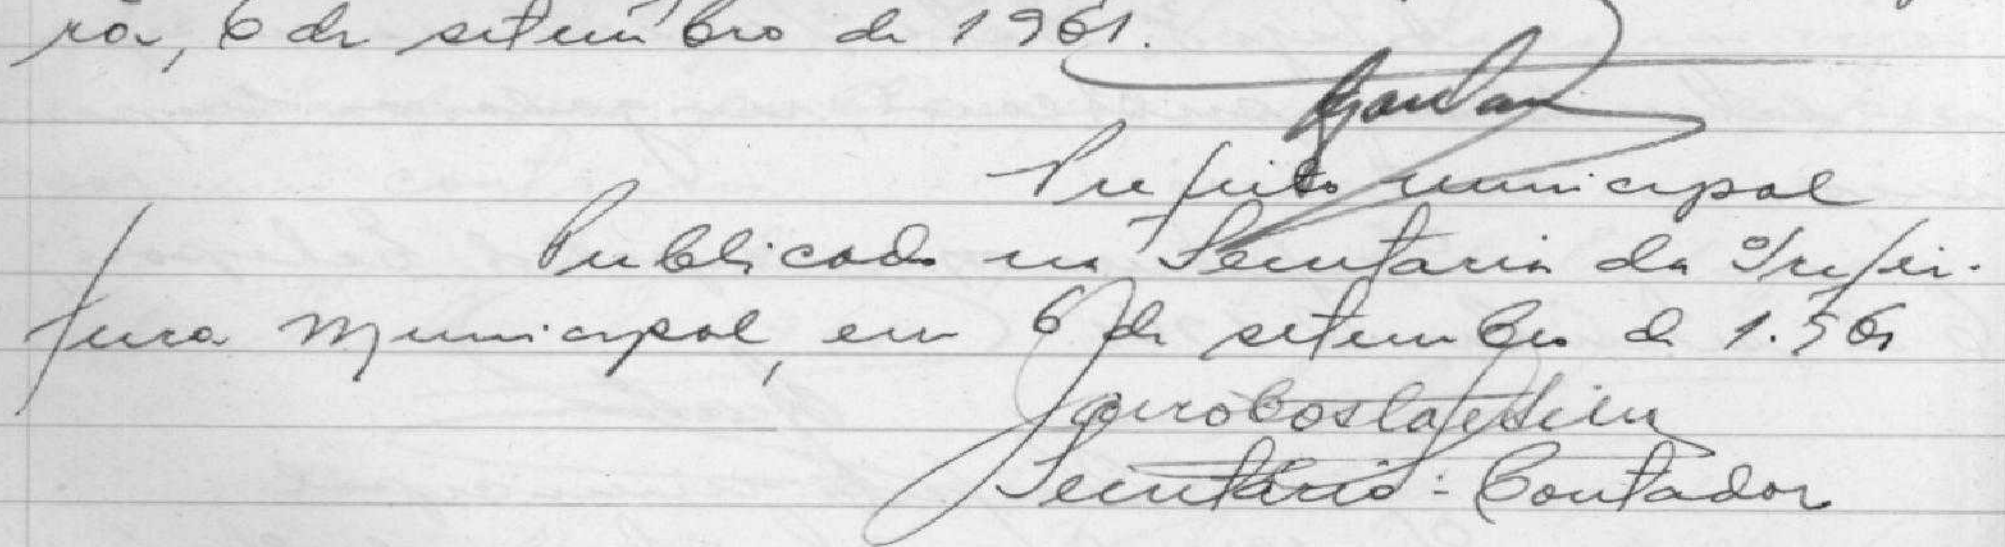 rã, 6 de setembro de 1961.
Prefeito municipal
Publicado na Secretaria da Prefei-
tura Municipal, em 6 de setembro de 1.961
Jairo Costa e Silva
Secretário-Contador